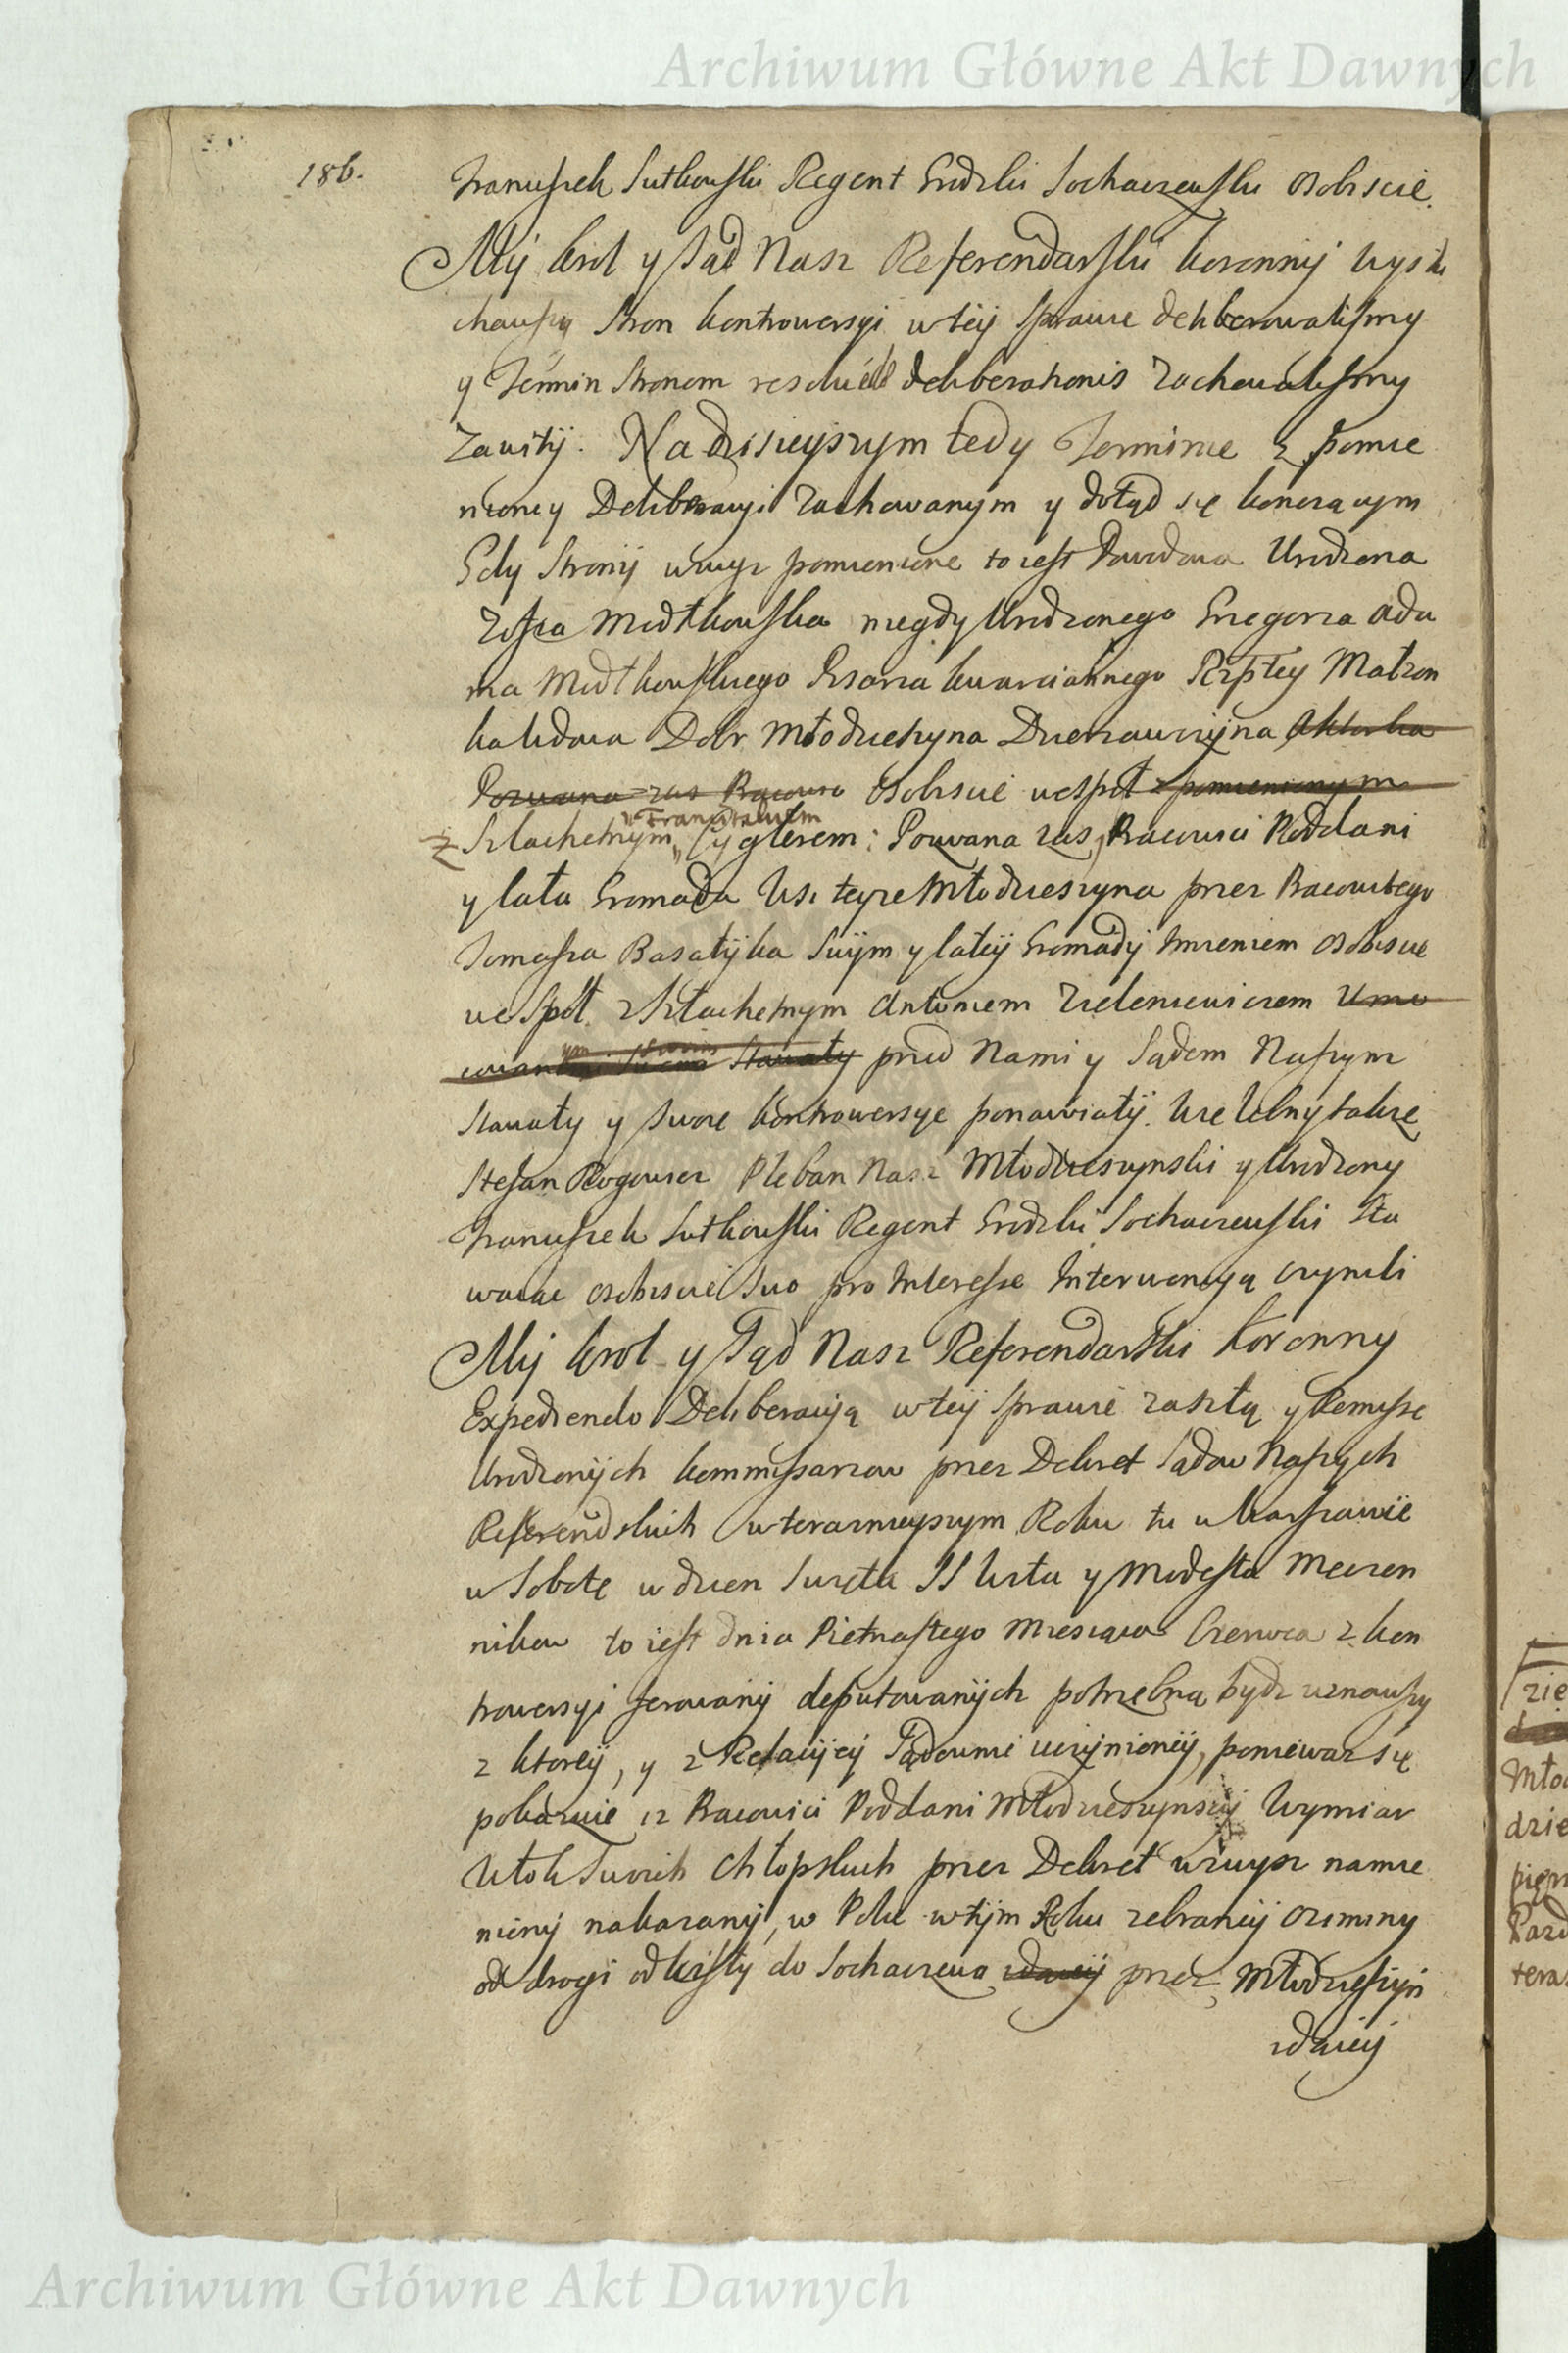 Archiwum Główne Akt Dawnych
186.
Franciszek Sutkowski Regent Grodzki Sochaczewski osobiscie.
My Krol y Sąd Nasz Referendarski Koronny wysłu
chawszy Stron kontrowersyi w tey Sprawie deliberowalismy
y Termin Stronom deliberationis zachowalismy
Zawity. Na dzisieyszym tedy Terminie z pomie
nioney Deliberacyi zachowanym y dotąd się konczącym
Gdy Strony wzwyz pomienione to iest Powodowa Urodzona
Zofia Modtkowska niegdy Urodzonego Grzegorza Ada
ma Modtkowskiego Pisarza kwarcianego Rzptey Małzon
ka wdowa Dobr Młodzieszyna Dzierzawczyna Aktorka
Pozwana zas Pracowici osobiscie wespoł z pomienionym
z Szlachetnym Franciszkiem Cyglerem: Pozwana zas Pracowici Poddani
y cała Gromada Wsi teyze Młodzieszyna przez Pracowitego
Tomasza Basatyka Swym y całey Gromady Imieniem osobiscie
wespoł z Szlachetnym Antoniem Zieleniewiczem Umo
cowanym Stawały przed Nami y Sądem Naszym
Stawały y swoie kontrowersye ponawiały. Wielebny takze
Stefan Rogowicz Pleban Nasz Młodzieszynski y Urodzony
Franciszek Sutkowski Regent Grodzki Sochaczewski Sta
waiąc osobiscie Suo pro Interesse Interwencyą czynili
My Krol y Sąd Nasz Referendarski Koronny
Expediendo Deliberacyią w tey Sprawie zaszłą y Remissę
Urodzonych Kommissarzow przez Dekret Sądow Naszych
Referendskich w teraznieyszym Roku tu w Warszawie
w Sobotę w dzien Swięta SS Wita y Modesta Męczen
nikow to iest dnia Piętnastego Miesiąca Czerwca z kon
trowersyi ferowany deputowanych potrzebną bydz uznawszy
z ktorey, y z Relacyiey Sądownie uczynioney, poniewaz się
pokazuie iz Pracowici Poddani Młodzieszynscy Wymiar
Włok Swoich Chłopskich przez Dekret wzwysz namie
niony nakazany, w Polu w tym Roku zebraney Oziminy
od drogi od Wisły do Sochaczewa idącey przez Młodzieszyn
idącey
Archiwum Główne Akt Dawnych